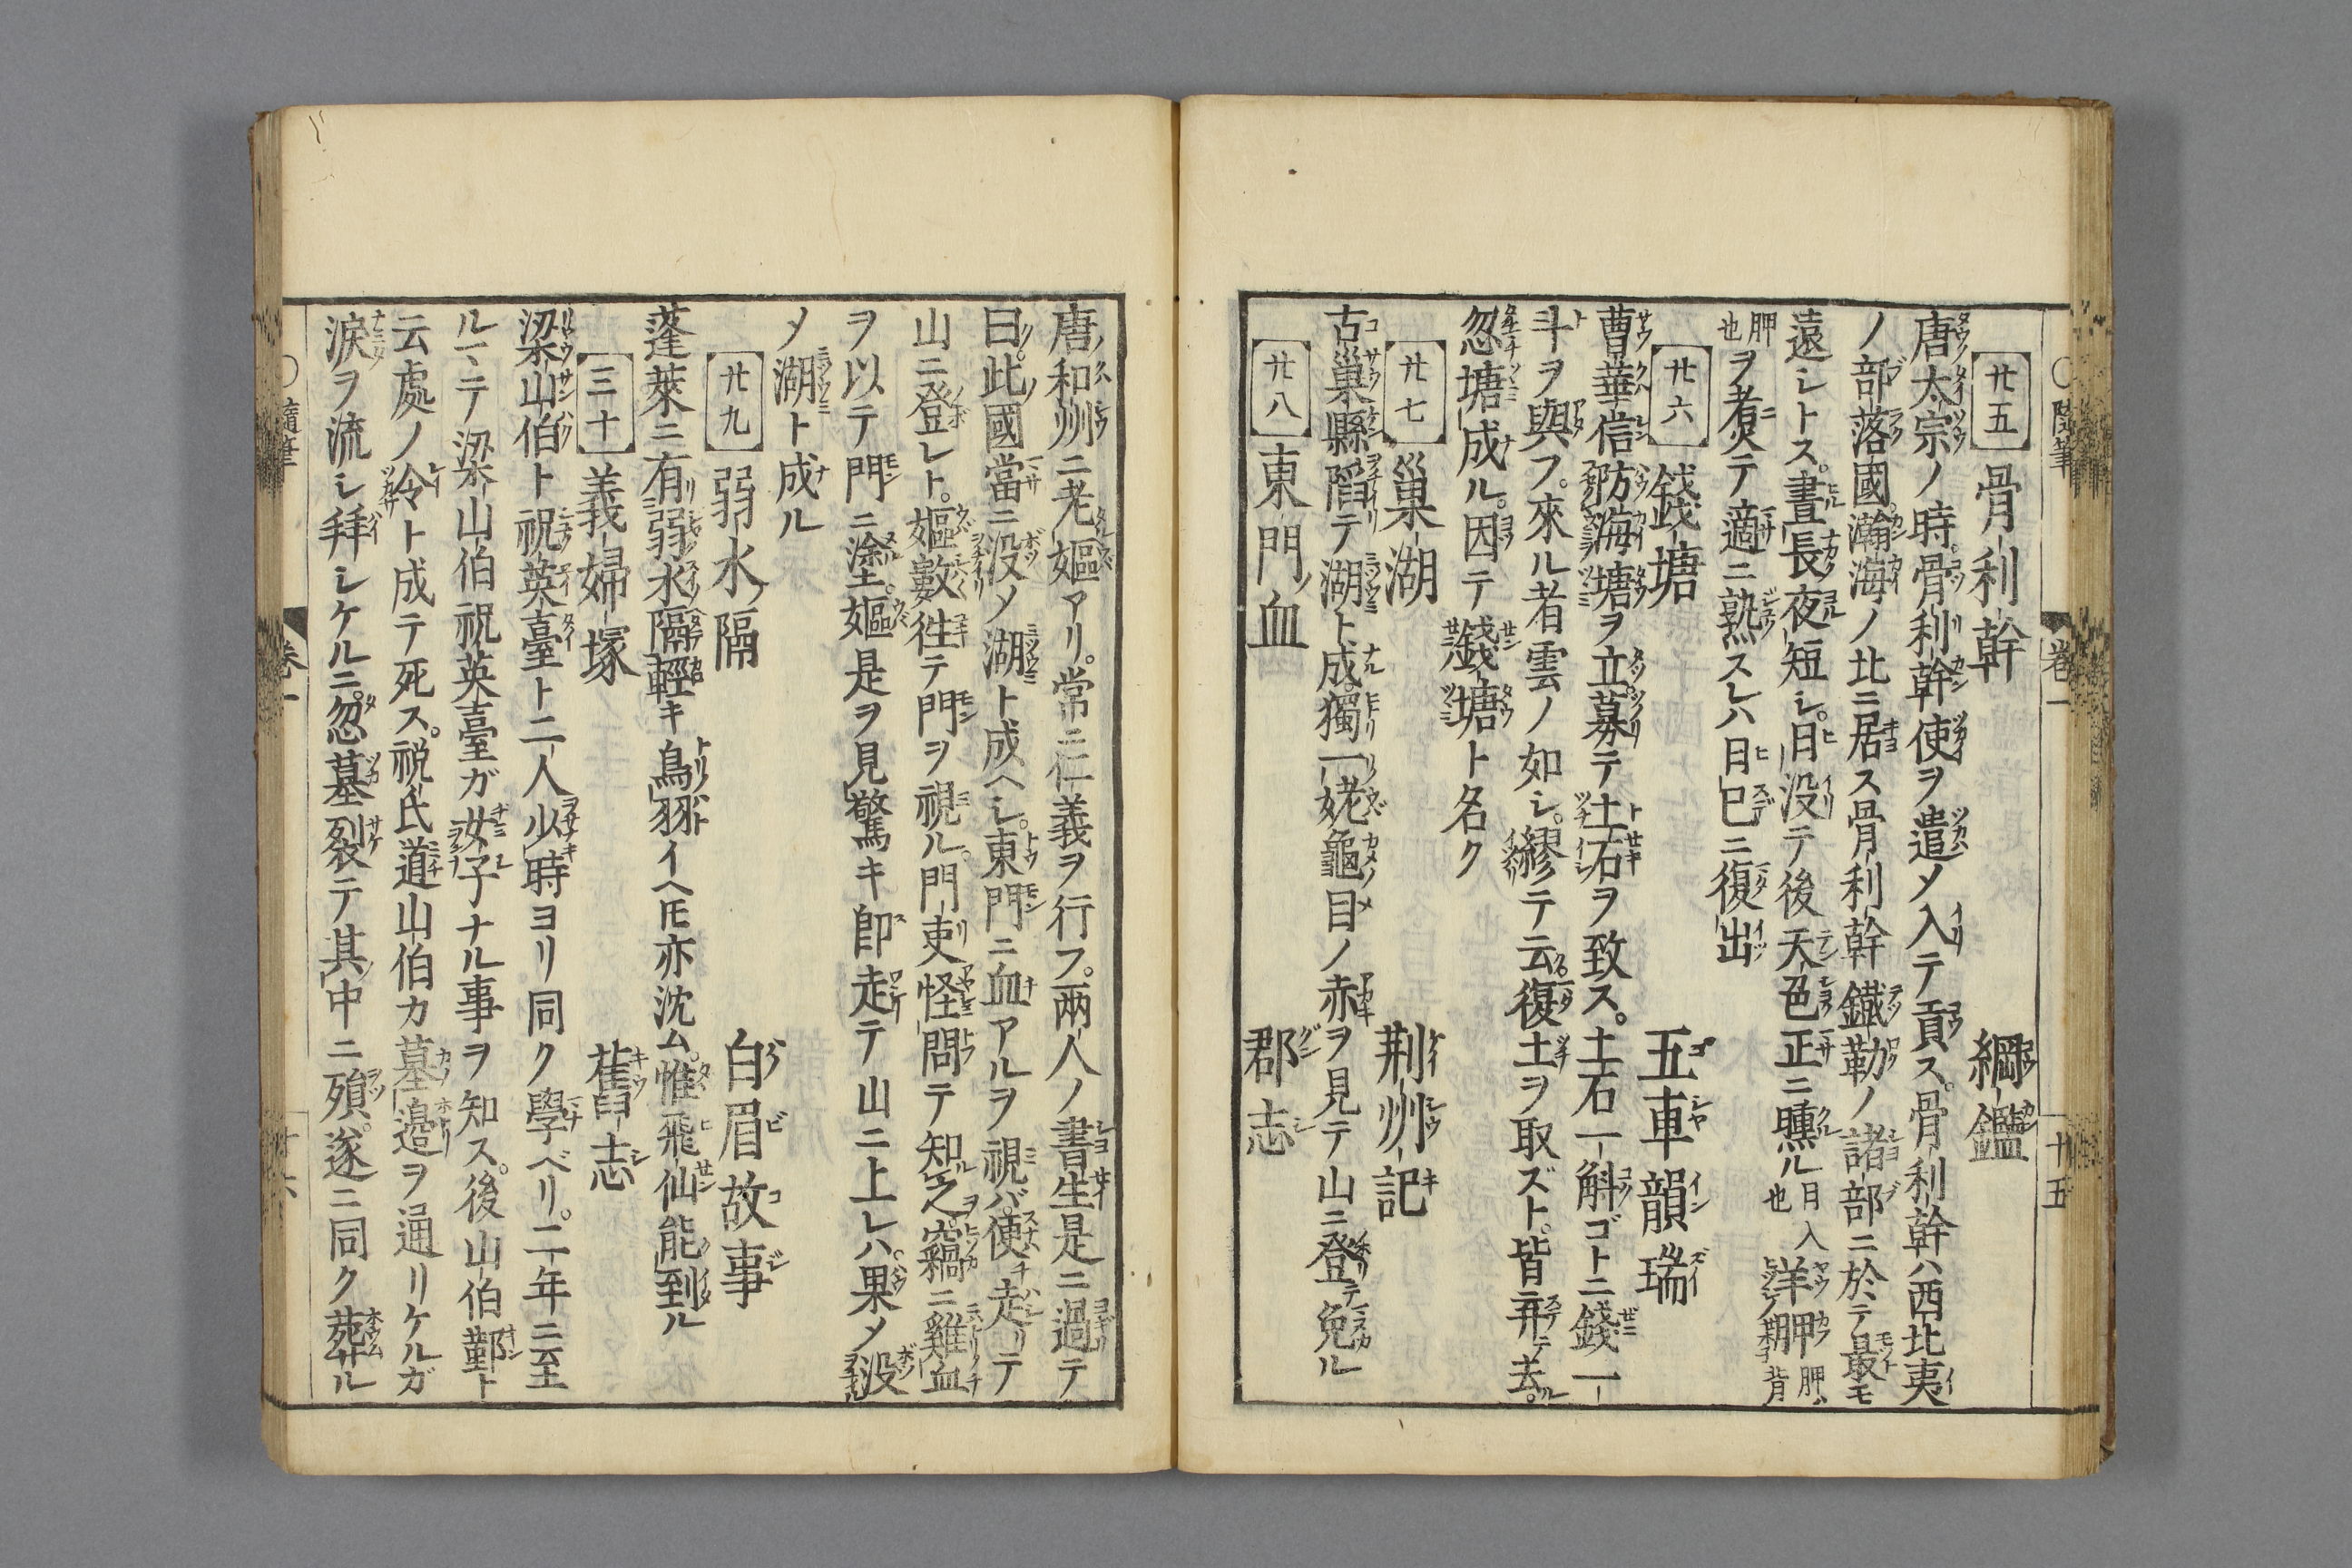 ○隨筆 卷一 十五
廿五 骨利幹 綱鑑
唐太宗ノ時。骨利幹使ヲ遣メ入テ貢ス。骨利幹ハ西北夷
ノ部落國。瀚海ノ北ニ居ス骨利幹鐵勒ノ諸部ニ於テ最モ
遠シトス。晝長夜短シ。日没テ後天色正ニ曛ル日入也羊胛胛ハ背
胛也ヲ煮テ適ニ熟スレハ日已ニ復出
廿六 錢塘 五車韻瑞
曹華信防海塘ヲ立。募テ土石ヲ致ス。土石一斛ゴトニ錢一
斗ヲ與フ。來ル者雲ノ如シ。繆テ云復土ヲ取ズト。皆弃テ去。
忽塘成ル。因テ錢塘ト名ク
廿七 巢湖 荊州記
古巢縣陷テ湖ト成。獨一姥龜目ノ赤ヲ見テ山ニ登テ免ル
廿八 東門血 郡志
唐和州ニ老嫗アリ。常ニ仁義ヲ行フ。兩人ノ書生是ニ過テ
曰。此國當ニ没メ湖ト成ヘシ。東門ニ血アルヲ視バ。便チ走リテ
山ニ登レト。嫗數往テ門ヲ視ル。門吏怪問テ知之。竊ニ雞血
ヲ以テ門ニ塗。嫗是ヲ見驚キ即走テ山ニ上レハ。果メ没
メ湖ト成ル
廿九 弱水隔 白眉故事
蓬萊ニ有弱水隔輕キ鳥羽イヘモ亦沈ム。惟飛仙能到ル
三十 義婦塚 舊志
梁山伯ト祝英臺ト二人少時ヨリ同ク學ベリ。二年ニ至
ルマテ梁山伯祝英臺ガ女子ナル事ヲ知ス。後山伯鄞ト
云處ノ令ト成テ死ス。祝氏道山伯カ墓邉ヲ通リケルガ
淚ヲ流シ拜シケルニ。忽墓裂テ其中ニ殞。遂ニ同ク葬ル
○隨筆 卷一 十六